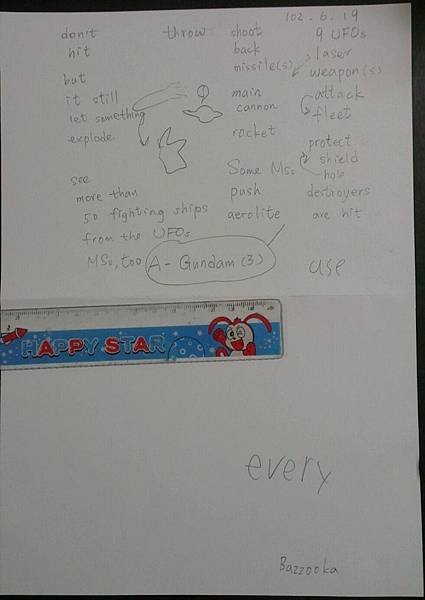 102.6.19
don't
hit
but
it still
let something
explode.
see
more than
50 fighting ships
from the UFOs
MSs, too
throw
shoot
back
missile(s)
main
cannon
rocket
Some MSs
push
aerolite
9 UFOs
laser
weapon(s)
attack
fleet
protect
shield
hole
destroyers
are hit
A- Gundam (3)
use
HAPPY STAR
every
Bazzooka